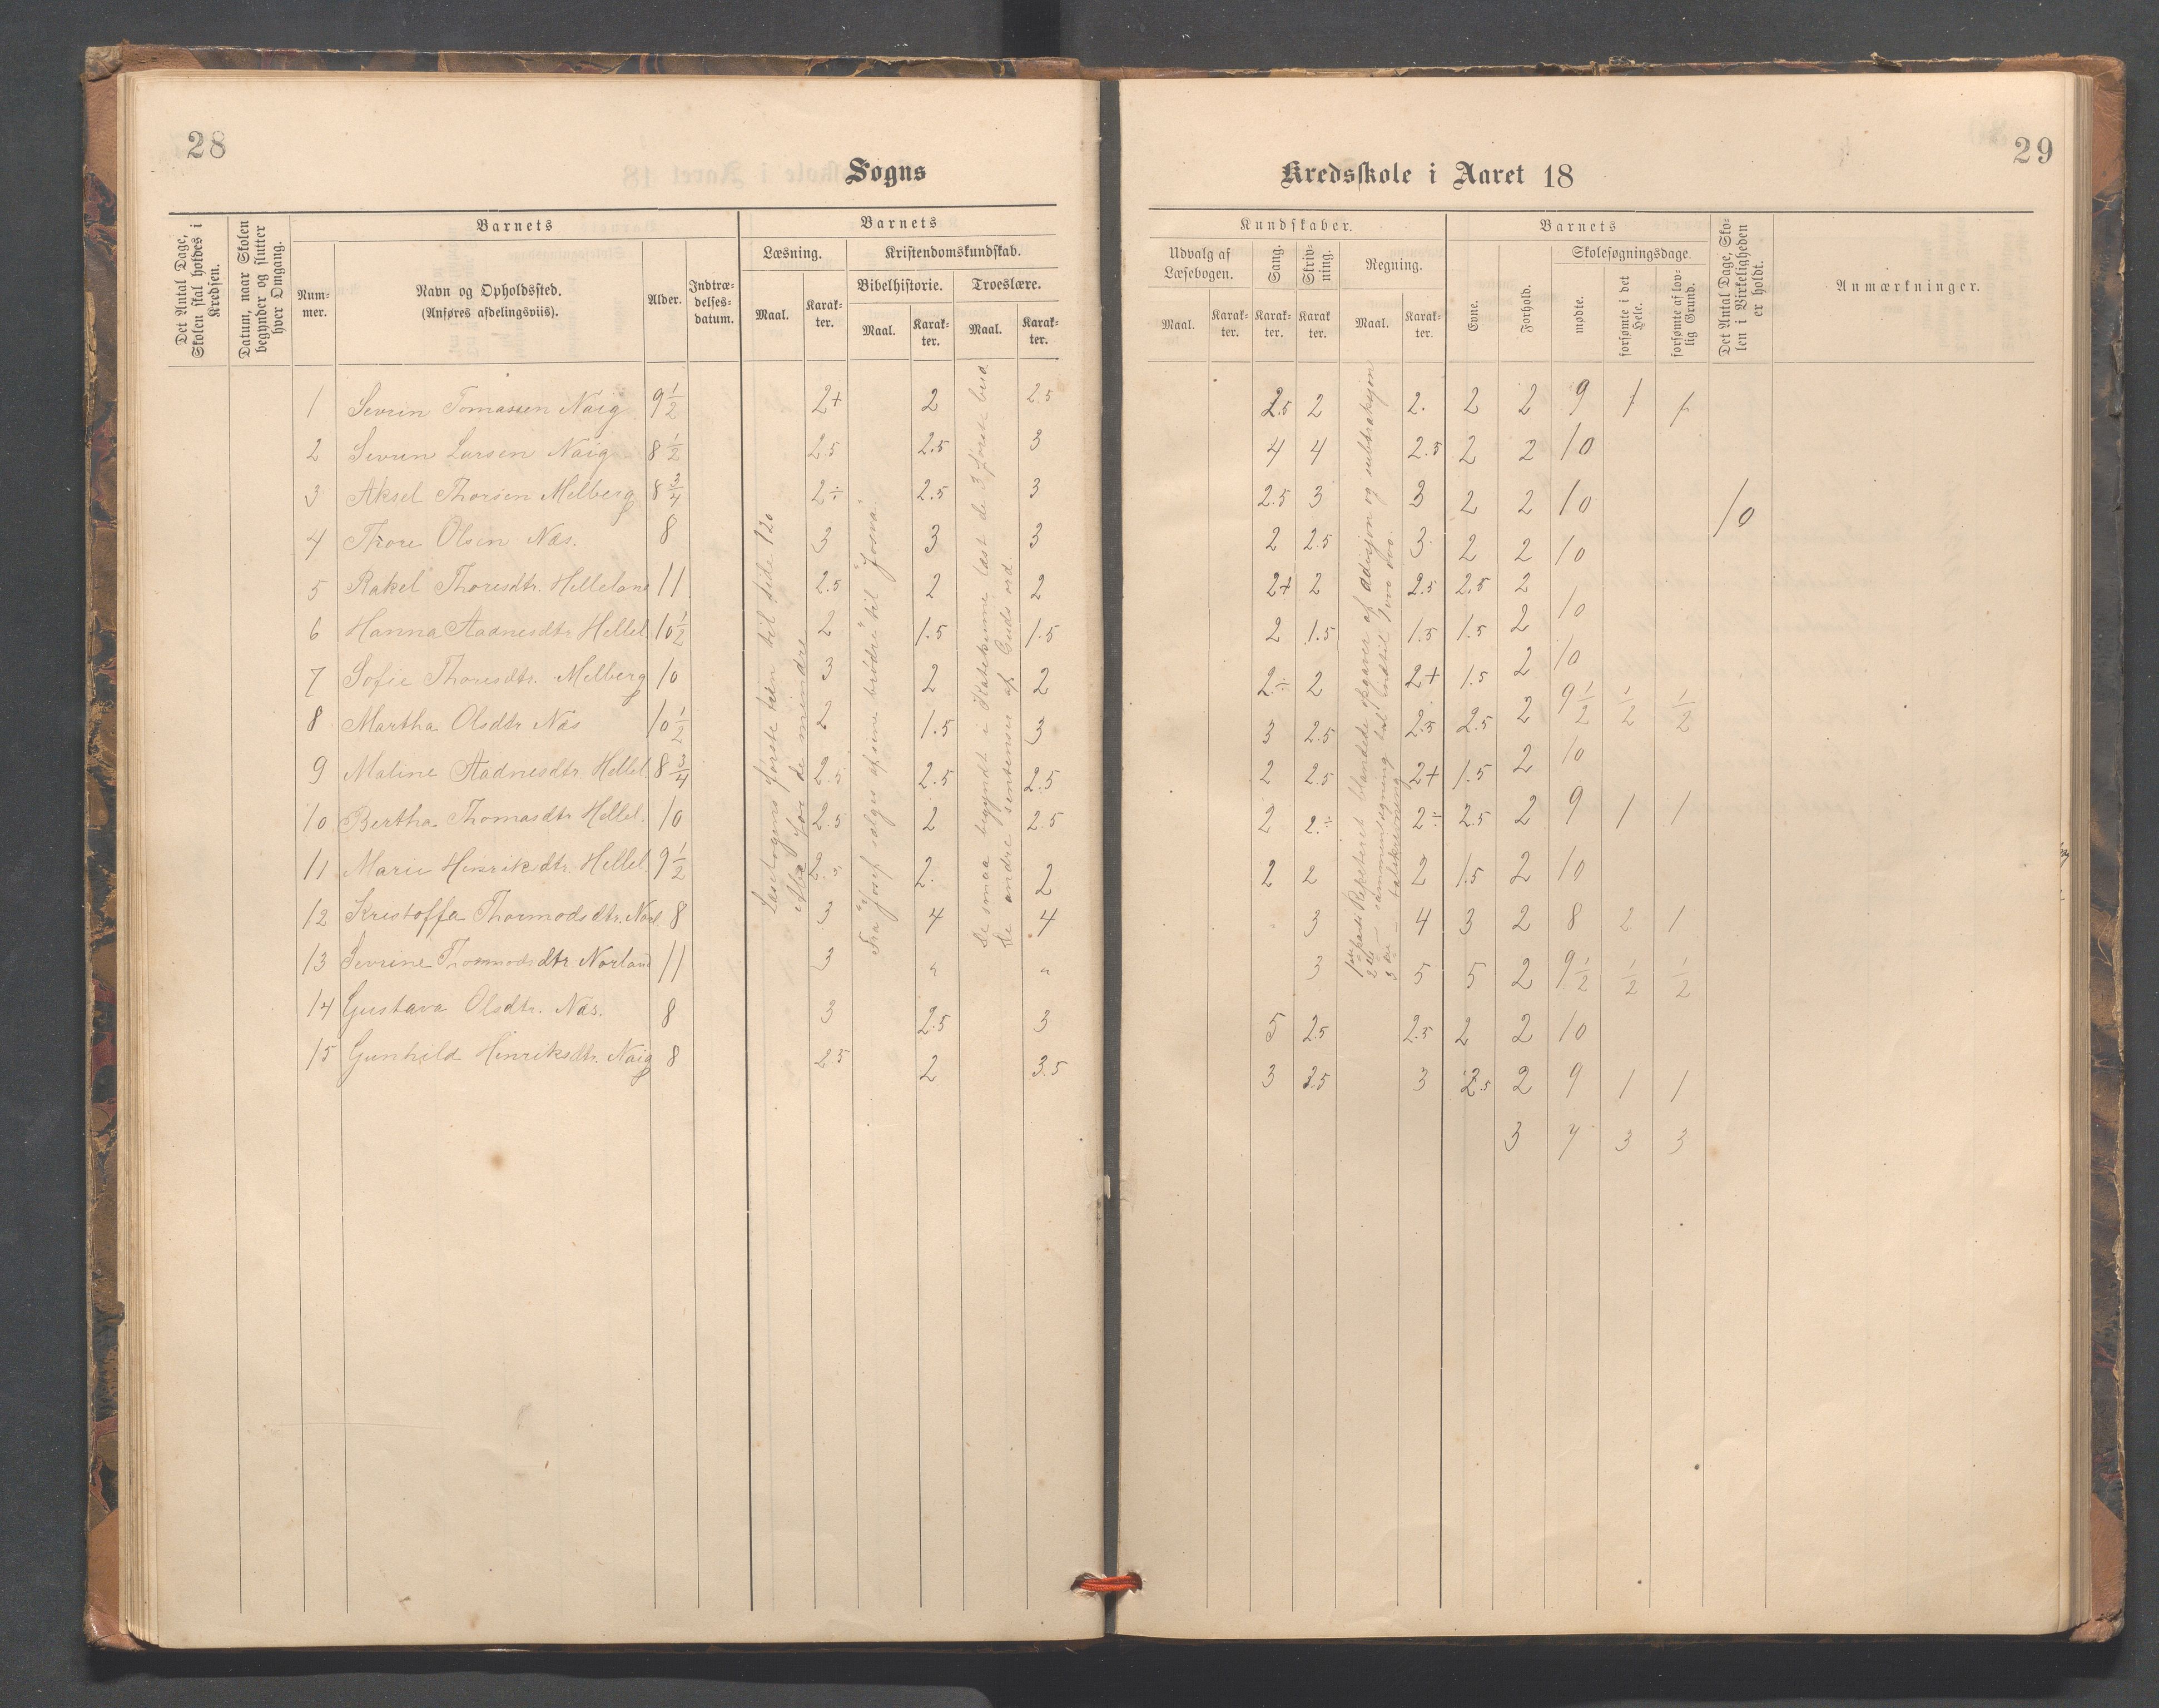 28
Sogns
Det Antal Dage, Skolen skal holdes i Kredsen.
Datum, naar Skolen begynder og slutter hver Omgang.
Barnets
Num-mer.
Navn og Opholdssted.
(Anføres afdelingsviis).
Alder.
Indtræ-delses-datum.
Barnets
Læsning.
Kristendomskundskab.
Bibelhistorie.
Troeslære.
Maal.
Karak-ter.
Maal.
Karak-ter.
Maal.
Karak-ter.
1 Sevrin Tomassen Naig 9 1/2 2+ 2 2.5
2 Sevrin Larsen Naig 8 1/2 2.5 2.5 3
3 Aksel Thorsen Melberg 8 3/4 2÷ 2.5 3
4 Thore Olsen Næs. 8 3 3 3
5 Rakel Thoresdtr. Helleland 11 2.5 2 2
6 Hanna Aadnesdtr Hellel. 10 1/2 2 1.5 1.5
7 Sofie Thoresdtr. Melberg 10 3 2 2
8 Martha Olsdtr Næs 10 1/2 2 1.5 3
9 Maline Aadnesdtr. Hellel. 8 3/4 2.5 2.5 2.5
10 Bertha Thomasdtr Hellel. 10 2.5 2 2.5
11 Marie Henriksdtr. Hellel. 9 1/2 2. 2. 2
12 Kristoffa Thormodsdtr. Norl. 8 3 4 4
13 Sevrine Thormodsdtr Norland 11 3 " "
14 Gustava Olsdtr. Næs. 8 3 2.5 3
15 Gunhild Henriksdtr. Naig 8 2.5 2 3.5
Læsebogens første trin til side 120
for de mindre
Fra "Josef sælges af sine brødre" til "Josva".
De smaa begyndt i Katekisme læst de 3 første bud
De andre sentenser af Guds ord
29
Kredsskole i Aaret 18
Kundskaber.
Udvalg af Læsebogen.
Sang.
Skriv-ning.
Regning.
Maal.
Karak-ter.
Karak-ter.
Karak-ter.
Maal.
Karak-ter.
Barnets
Evne.
Forhold.
Skolesøgningsdage.
mødte.
forsømte i det Hele.
forsømte af lov-lig Grund.
Det Antal Dage, Sko-len i Virkeligheden er holdt.
Anmærkninger.
2.5 2 2. 2 2 9 1 1
4 4 2.5 2 2 10
2.5 3 3 2 2 10 10
2 2.5 3. 2 2 10
2+ 2 2.5 2.5 2
2 1.5 1.5 1.5 2 10
2.÷ 2 2+ 1.5 2 10
3 2.5 2.5 2.5 2 9 1/2 1/2 1/2
2 2.5 2+ 1.5 2 10
2 2.÷ 2÷ 2.5 2 9 1 1
2 2 2 1.5 2 10
3 4 3 2 8 2 1
3 5 5 2 9 1/2 1/2 1/2
5 2.5 2.5 2 2 10
3 3.5 3 2.5 2 9 1 1
3 7 3 3
1ste parti Repeteret blandede opgaver af adisjon og subtraksjon
2det — sammenlegning tal indtil
3die — talskrivning